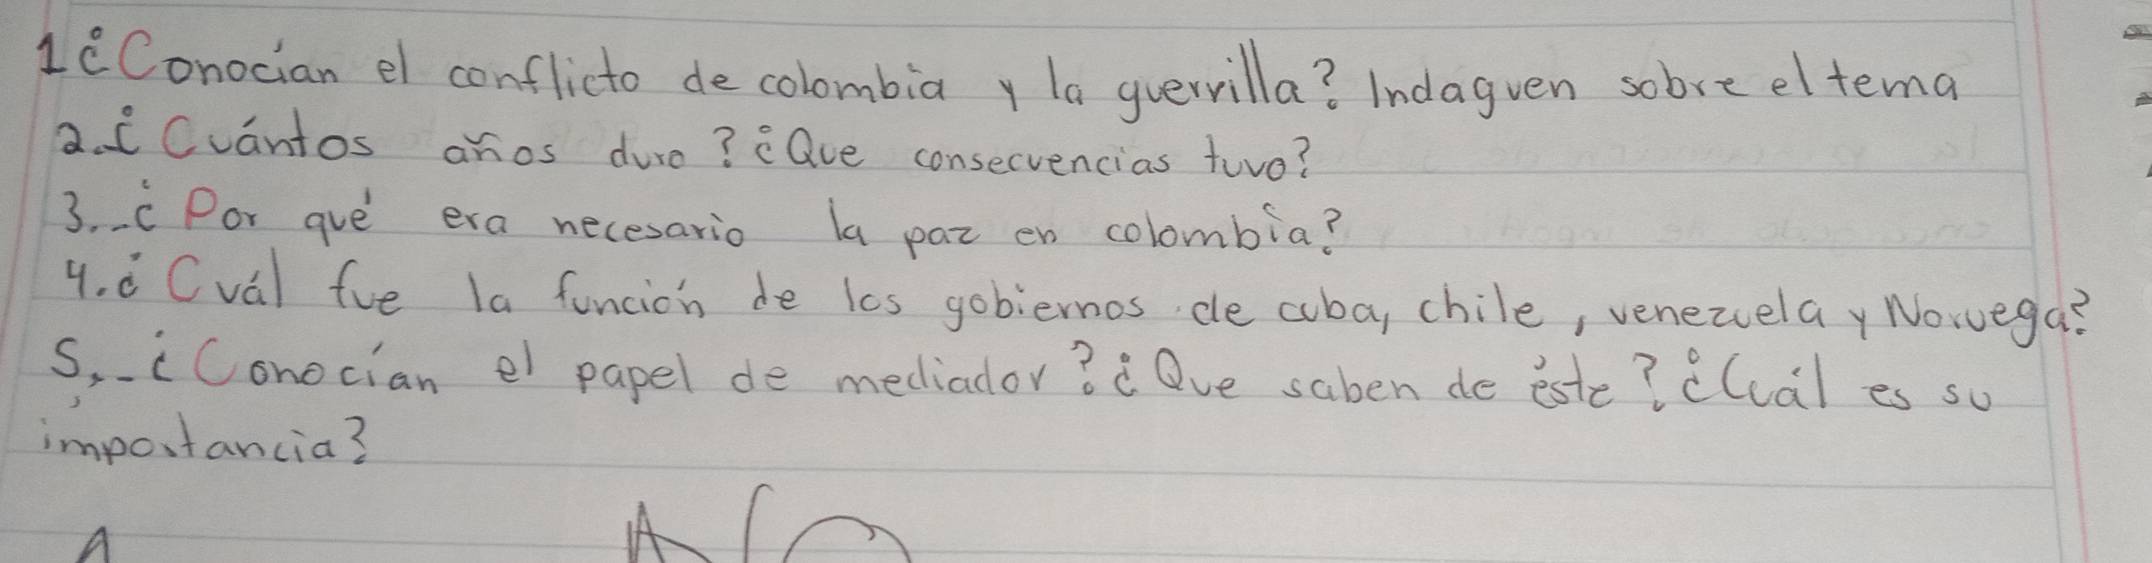 1¿Conocían el conflicto de colombia y la guerrilla? Indaguen sobre el tema
2.¿Cuántos años duro? ¿Que consecuencias tuvo?
3.-¿Por qué era necesario la paz en colombia?
4.¿Cuál fue la función de los gobiernos de cuba, chile, venezuela y Noruega?
5.-¿Conocían el papel de mediador? ¿Que saben de éste? ¿Cuál es su
importancia?